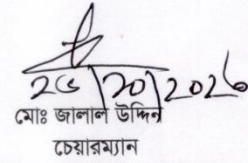 ২৫/১০/২০২৬
মোঃ জালাল উদ্দিন
চেয়ারম্যান